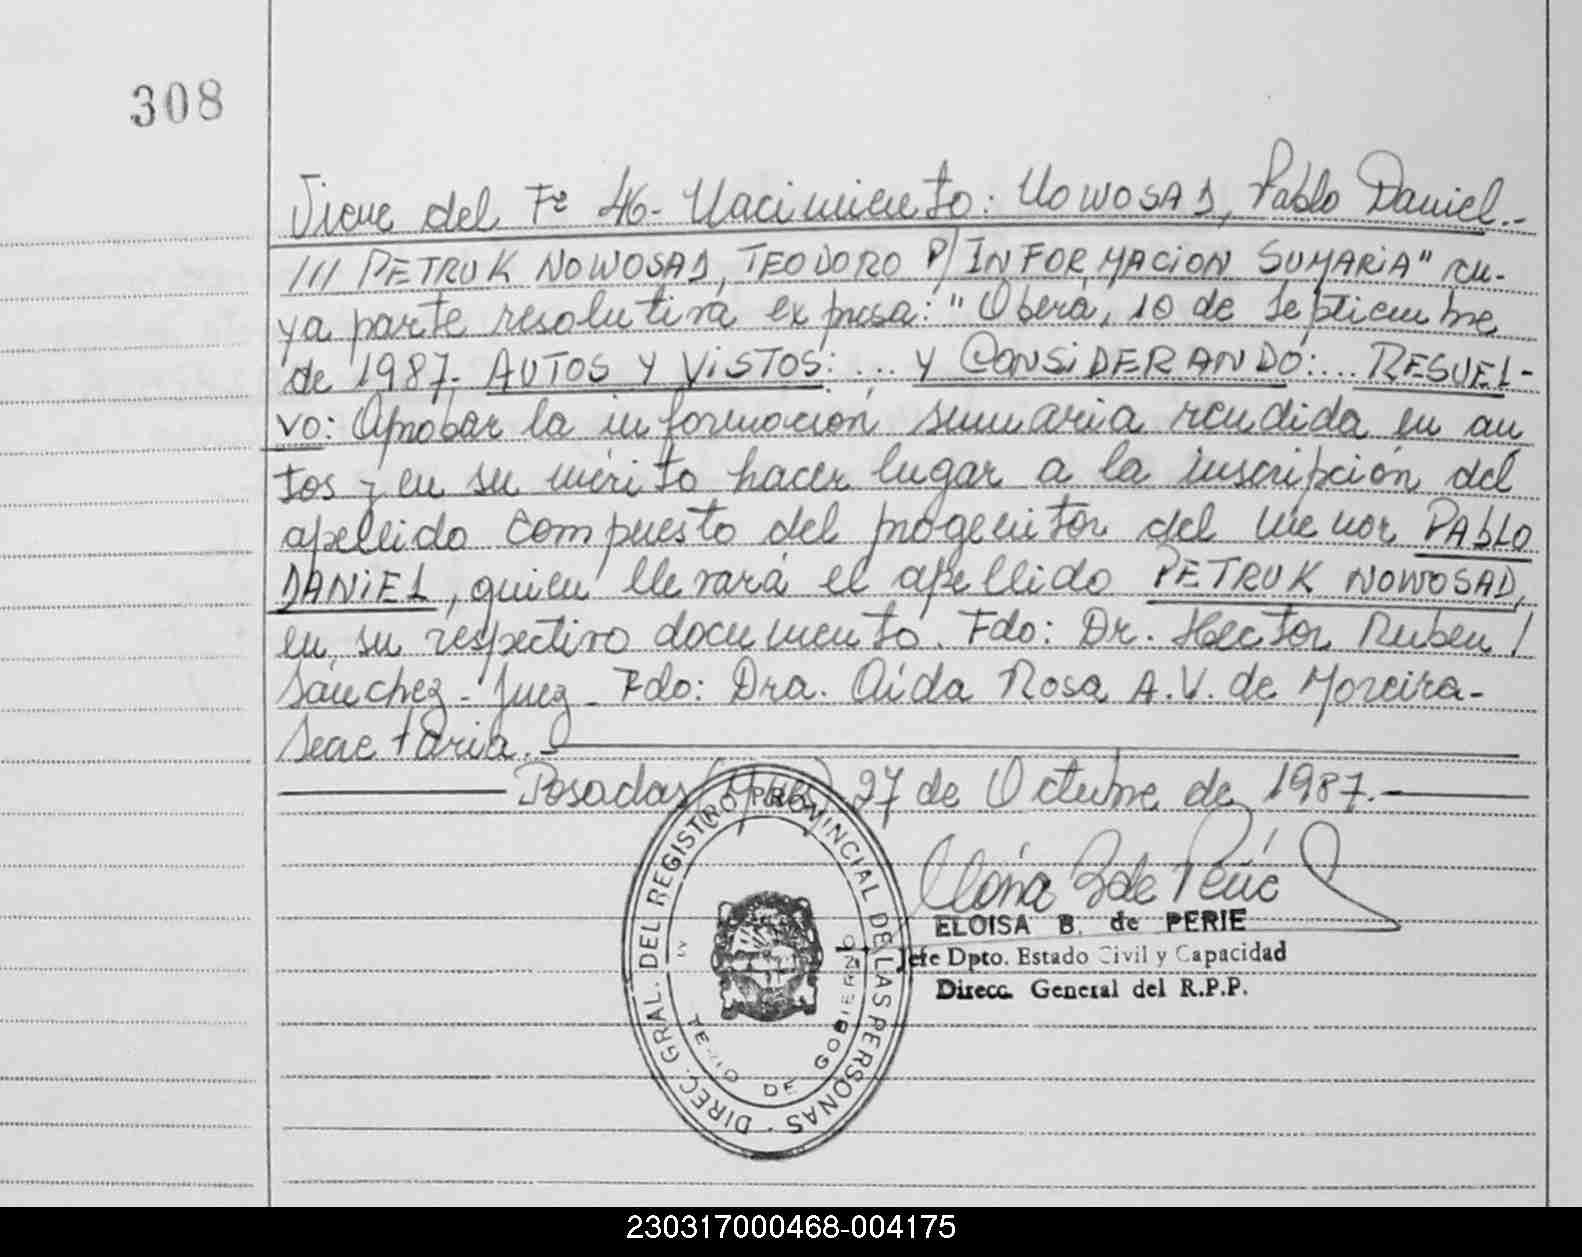 308
Viene del Fº 46- Nacimiento: NOWOSAD, Pablo Daniel.-
/// PETRUK NOWOSAD, TEODORO P/INFORMACION SUMARIA" cu-
ya parte resolutiva expresa: "Oberá, 10 de septiembre
de 1987- AUTOS Y VISTOS: ... y CONSIDERANDO: ... RESUEL-
VO: Aprobar la información sumaria rendida en au
tos y en su mérito hacer lugar a la inscripción del
apellido compuesto del progenitor del menor PABLO
DANIEL, quien llevará el apellido PETRUK NOWOSAD,
en su respectivo documento. Fdo: Dr. Hector Ruben /
Sanchez - Juez - Fdo: Dra. Aida Rosa A.V. de Moreira-
Secretaria.-
Posadas, 27 de Octubre de 1987.-
ELOISA B. de PERIE
Jefe Dpto. Estado Civil y Capacidad
Direcc. General del R.P.P.
DIREC. GRAL. DEL REGISTRO PROVINCIAL DE LAS PERSONAS
DE GOBIERNO
230317000468-004175